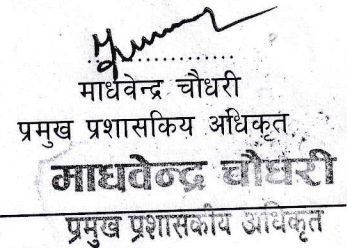 ....................
माधवेन्द्र चौधरी
प्रमुख प्रशासकिय अधिकृत
माधवेन्द्र चौधरी
प्रमुख प्रशासकीय अधिकृत